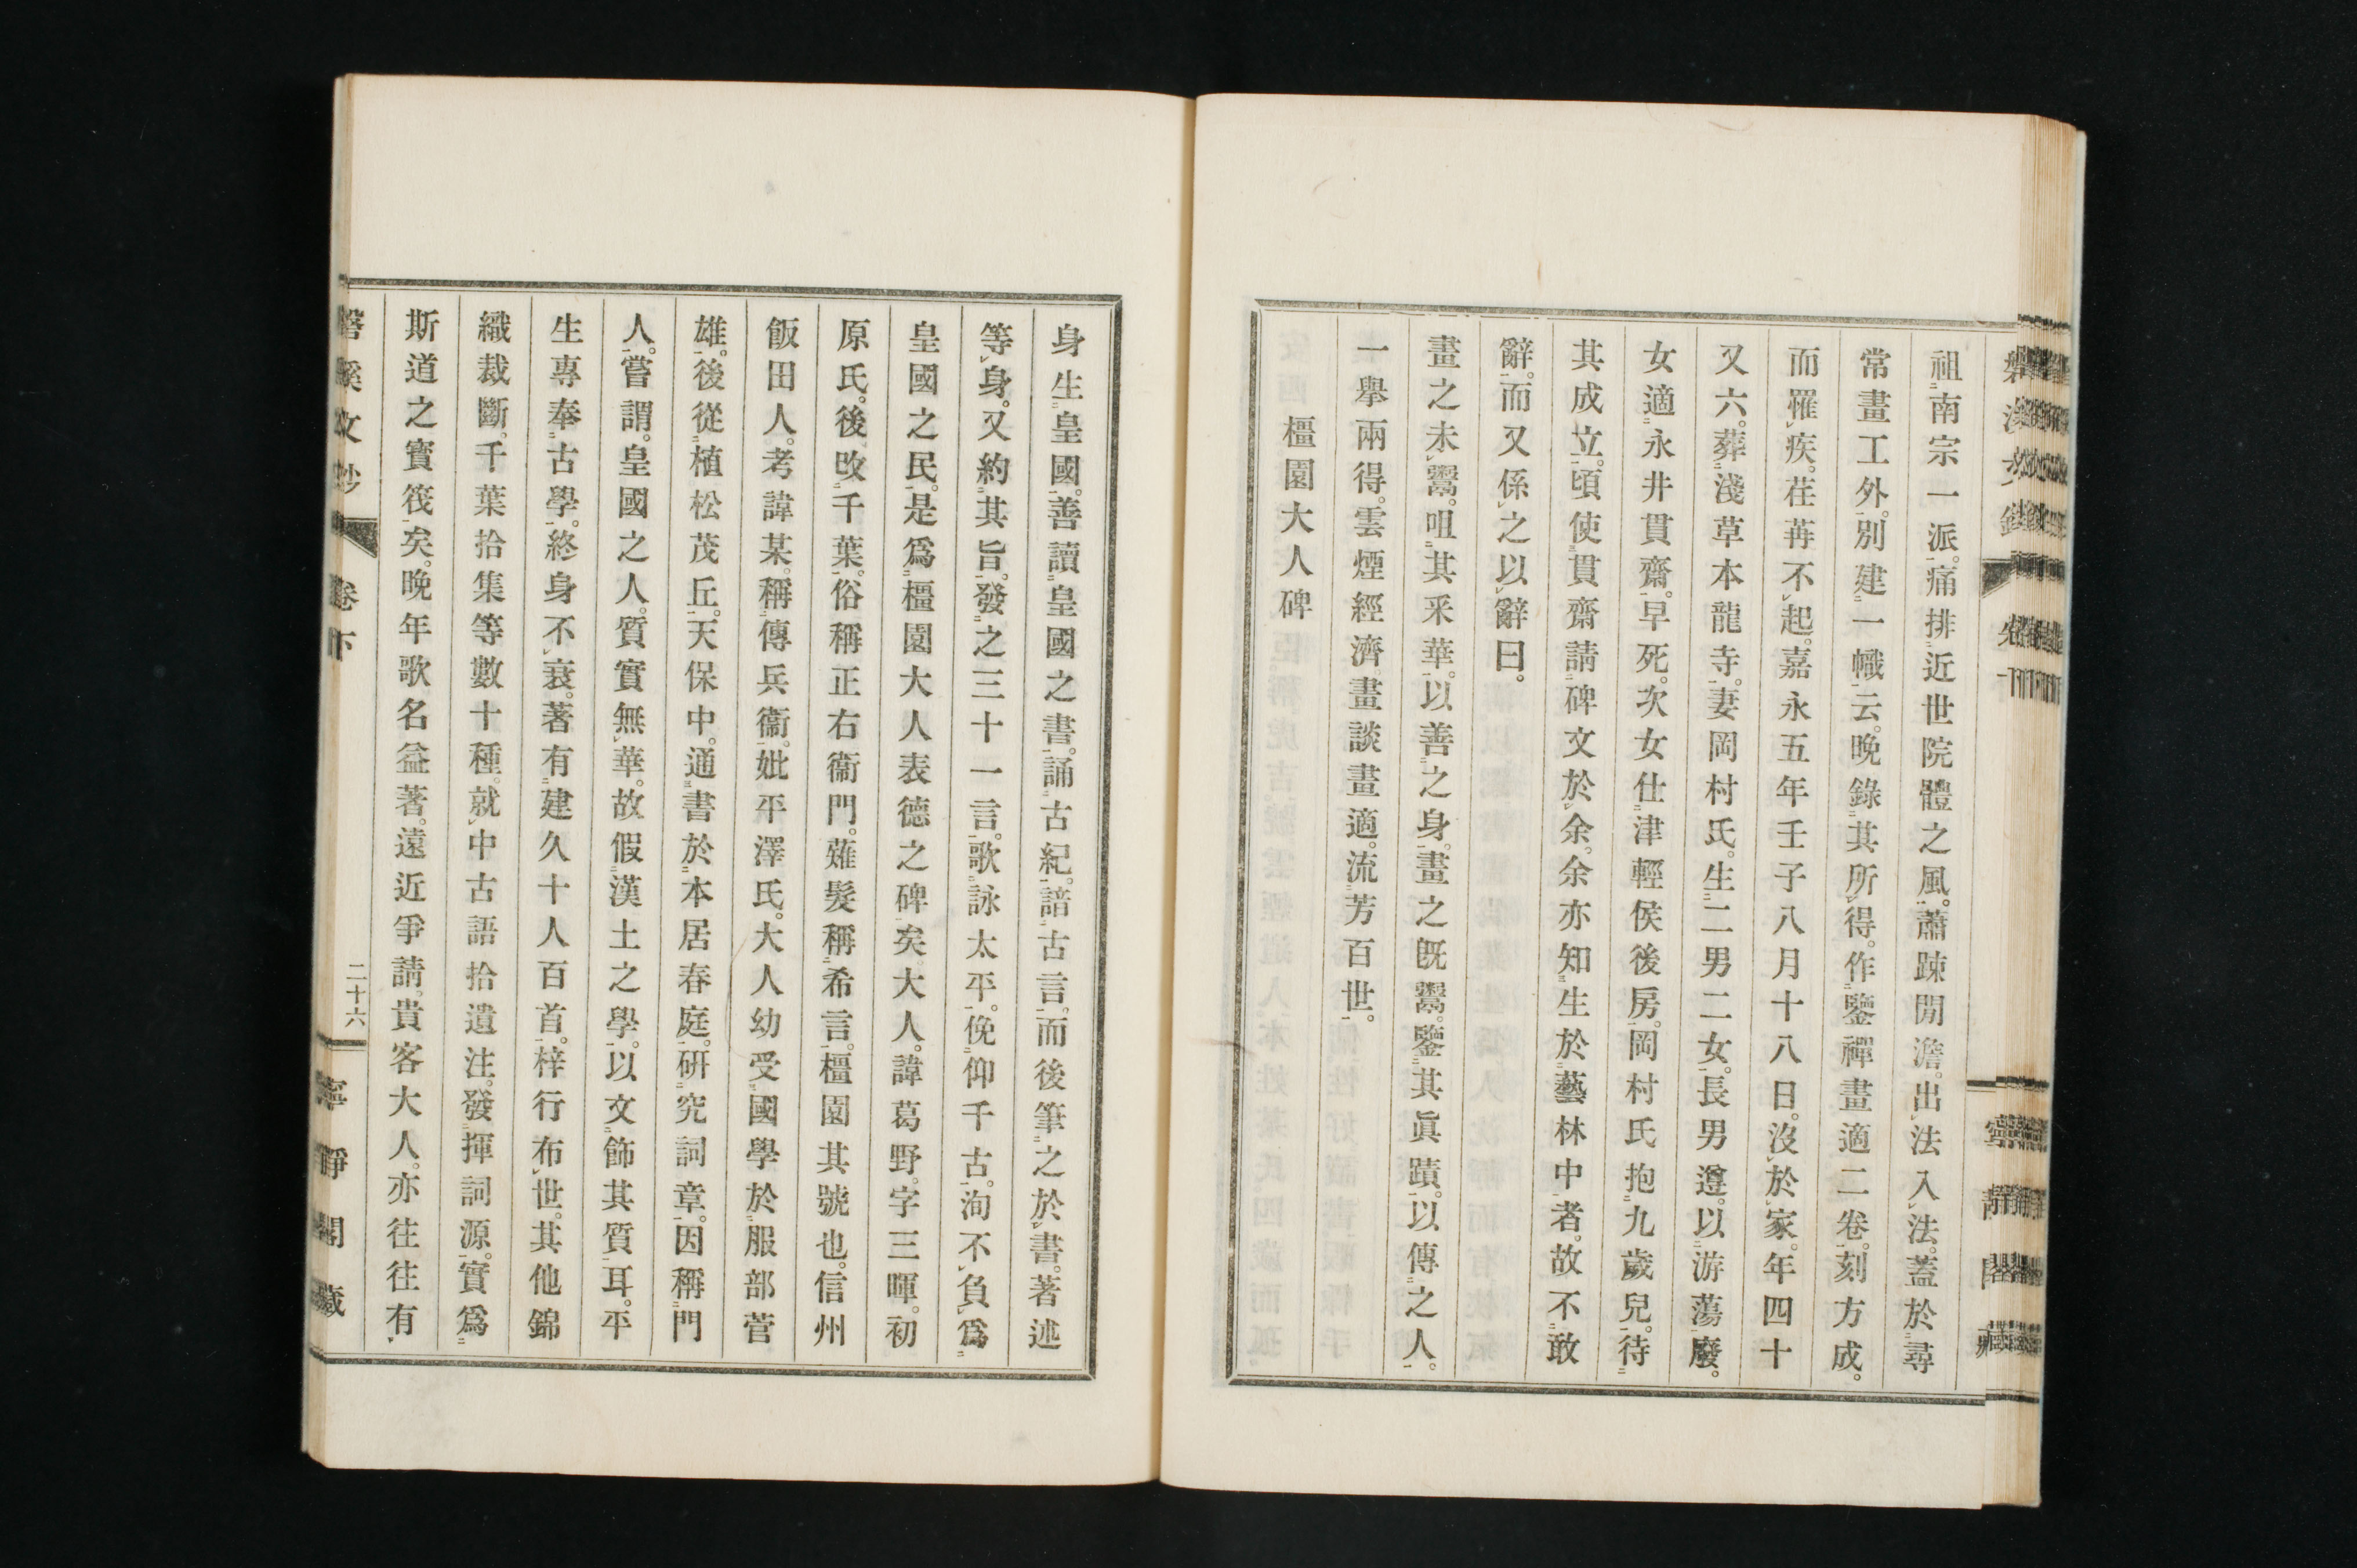 祖。南宗一派。痛排近世院體之風。蕭疎閒澹。出法入法。蓋於尋
常畫工外。別建一幟云。晚錄其所得。作鑒禪畫適二卷。刻方成。
而罹疾。荏苒不起。嘉永五年壬子八月十八日。沒於家。年四十
又六。葬淺草本龍寺。妻岡村氏。生二男二女。長男遵。以游蕩廢。
女適永井貫齋。早死。次女仕津輕侯後房。岡村氏抱九歲兒。待
其成立。頃使貫齋請碑文於余。余亦知生於藝林中者。故不敢
辭。而又係之以辭曰。
畫之未鬻。咀其釆華。以善之身。畫之既鬻。鑒其眞蹟。以傳之人。
一舉兩得。雲煙經濟。畫談畫適。流芳百世。
橿園大人碑
身生皇國。善讀皇國之書。誦古紀。諳古言。而後筆之於書。著述
等身。又約其旨。發之三十一言。歌詠太平。俛仰千古。洵不負爲
皇國之民。是爲橿園大人表德之碑矣。大人。諱葛野。字三暉。初
原氏。後改千葉。俗稱正右衞門。薙髮稱希言。橿園其號也。信州
飯田人。考諱某。稱傳兵衞。妣平澤氏。大人幼受國學於服部菅
雄。後從植松茂丘。天保中。通書於本居春庭。研究詞章。因稱門
人。嘗謂。皇國之人。質實無華。故假漢土之學。以文飾其質耳。平
生專奉古學。終身不衰。著有建久十人百首。梓行布世。其他錦
織裁斷。千葉拾集等數十種。就中古語拾遺注。發揮詞源。實爲
斯道之寶筏矣。晚年歌名益著。遠近爭請。貴客大人。亦往往有
磐溪文鈔
卷下
二十六
寧靜閣藏